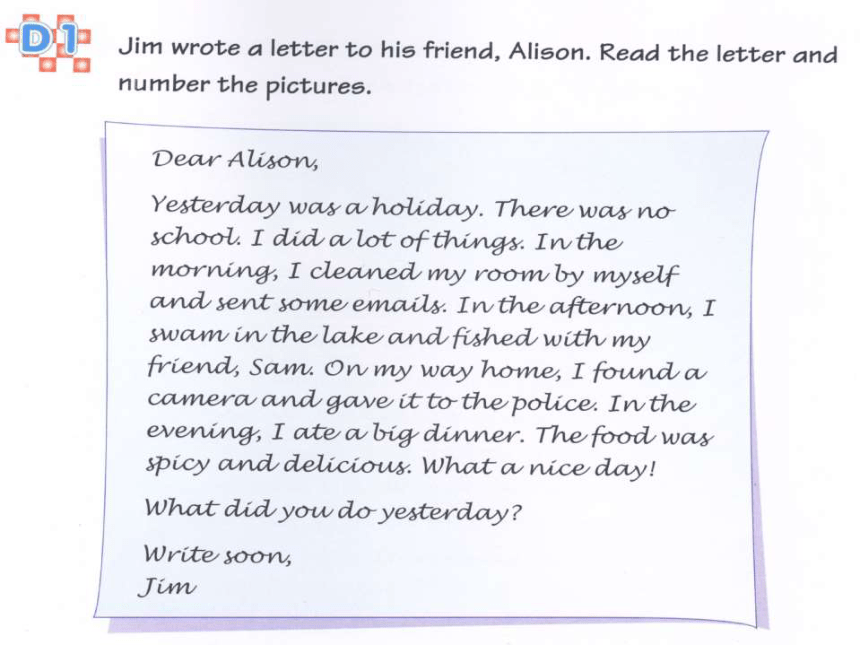 D1
Jim wrote a letter to his friend, Alison. Read the letter and
number the pictures.
Dear Alison,
Yesterday was a holiday. There was no
school. I did a lot of things. In the
morning, I cleaned my room by myself
and sent some emails. In the afternoon, I
swam in the lake and fished with my
friend, Sam. On my way home, I found a
camera and gave it to the police. In the
evening, I ate a big dinner. The food was
spicy and delicious. What a nice day!
What did you do yesterday?
Write soon,
Jim